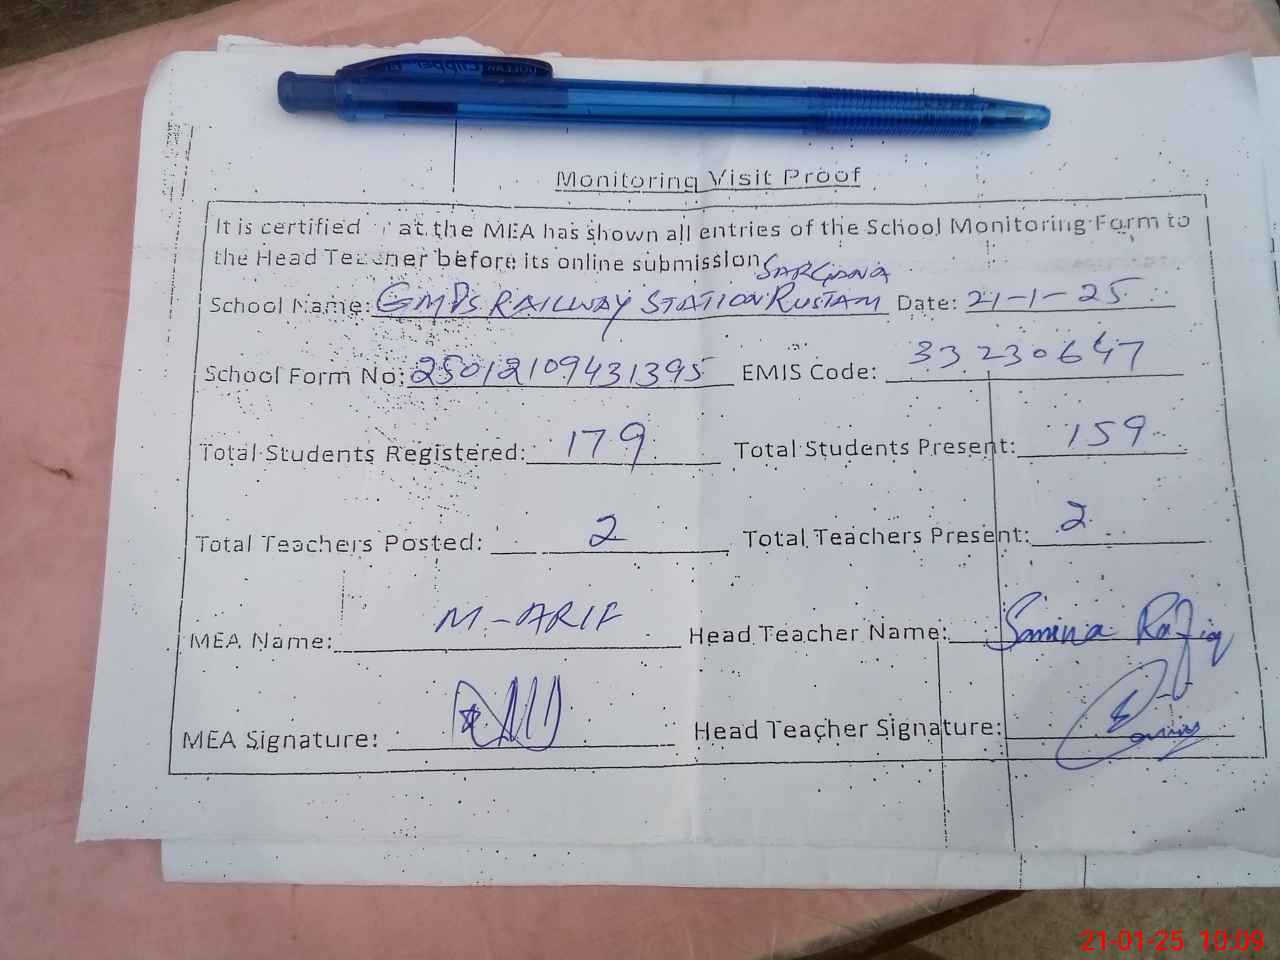 Monitoring Visit Proof
It is certified at the MEA has shown all entries of the School Monitoring Form to
the Head Teacher before its online submission
SARGANA
School Name: GMPS RAILWAY STATION RUSTAM Date: 21-1-25
School Form No: 25012109431395 EMIS Code: 33230647
Total Students Registered: 179 Total Students Present: 159
Total Teachers Posted: 2 Total Teachers Present: 2
MEA Name: M-ARIF Head Teacher Name: Samina Rafiq
MEA Signature: Head Teacher Signature:
21-01-25 10:09